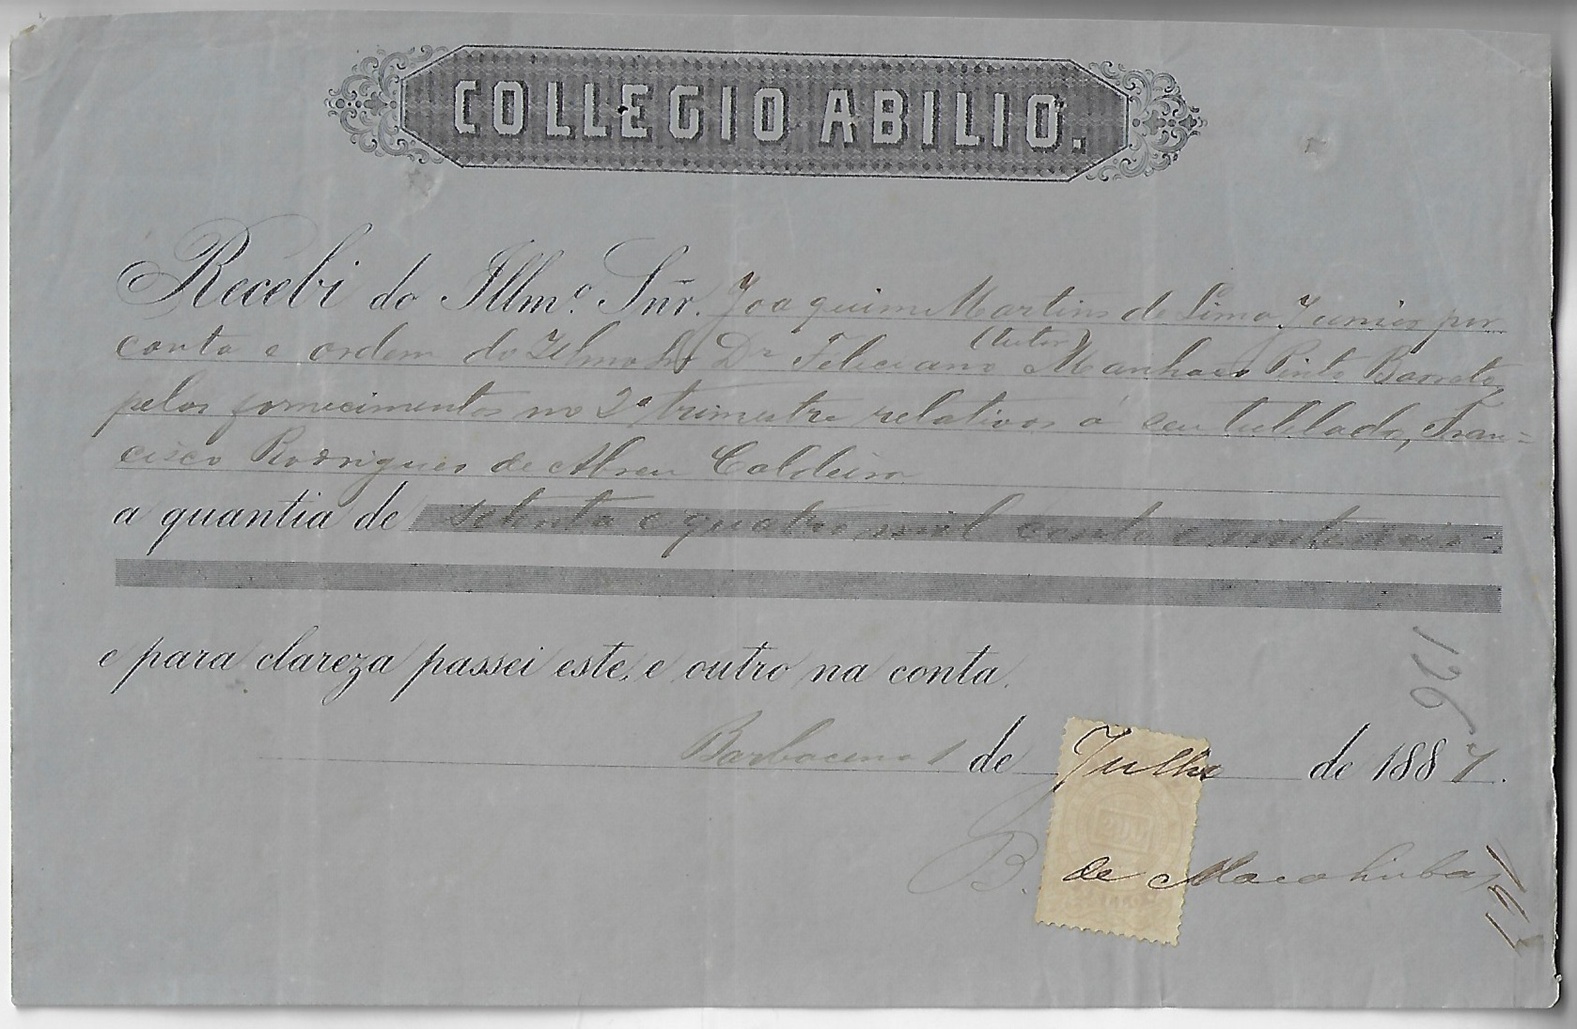 COLLEGIO ABILIO.
Recebi do Illmº. Sñr. Joaquim Martins de Lima Junior por
(tutor)
conta e ordem do Illmo Sr Dr Feliciano Manhães Pinto Barreto,
pelos fornecimentos no 2º trimestre relativos á seu tutelado, Fran=
cisco Rodrigues de Abreu Caldeira
a quantia de setenta e quatro mil cento e vinte reis
e para clareza passei este, e outro na conta.
126
Barbacena 1 de Julho de 1887.
B. de Macahubas